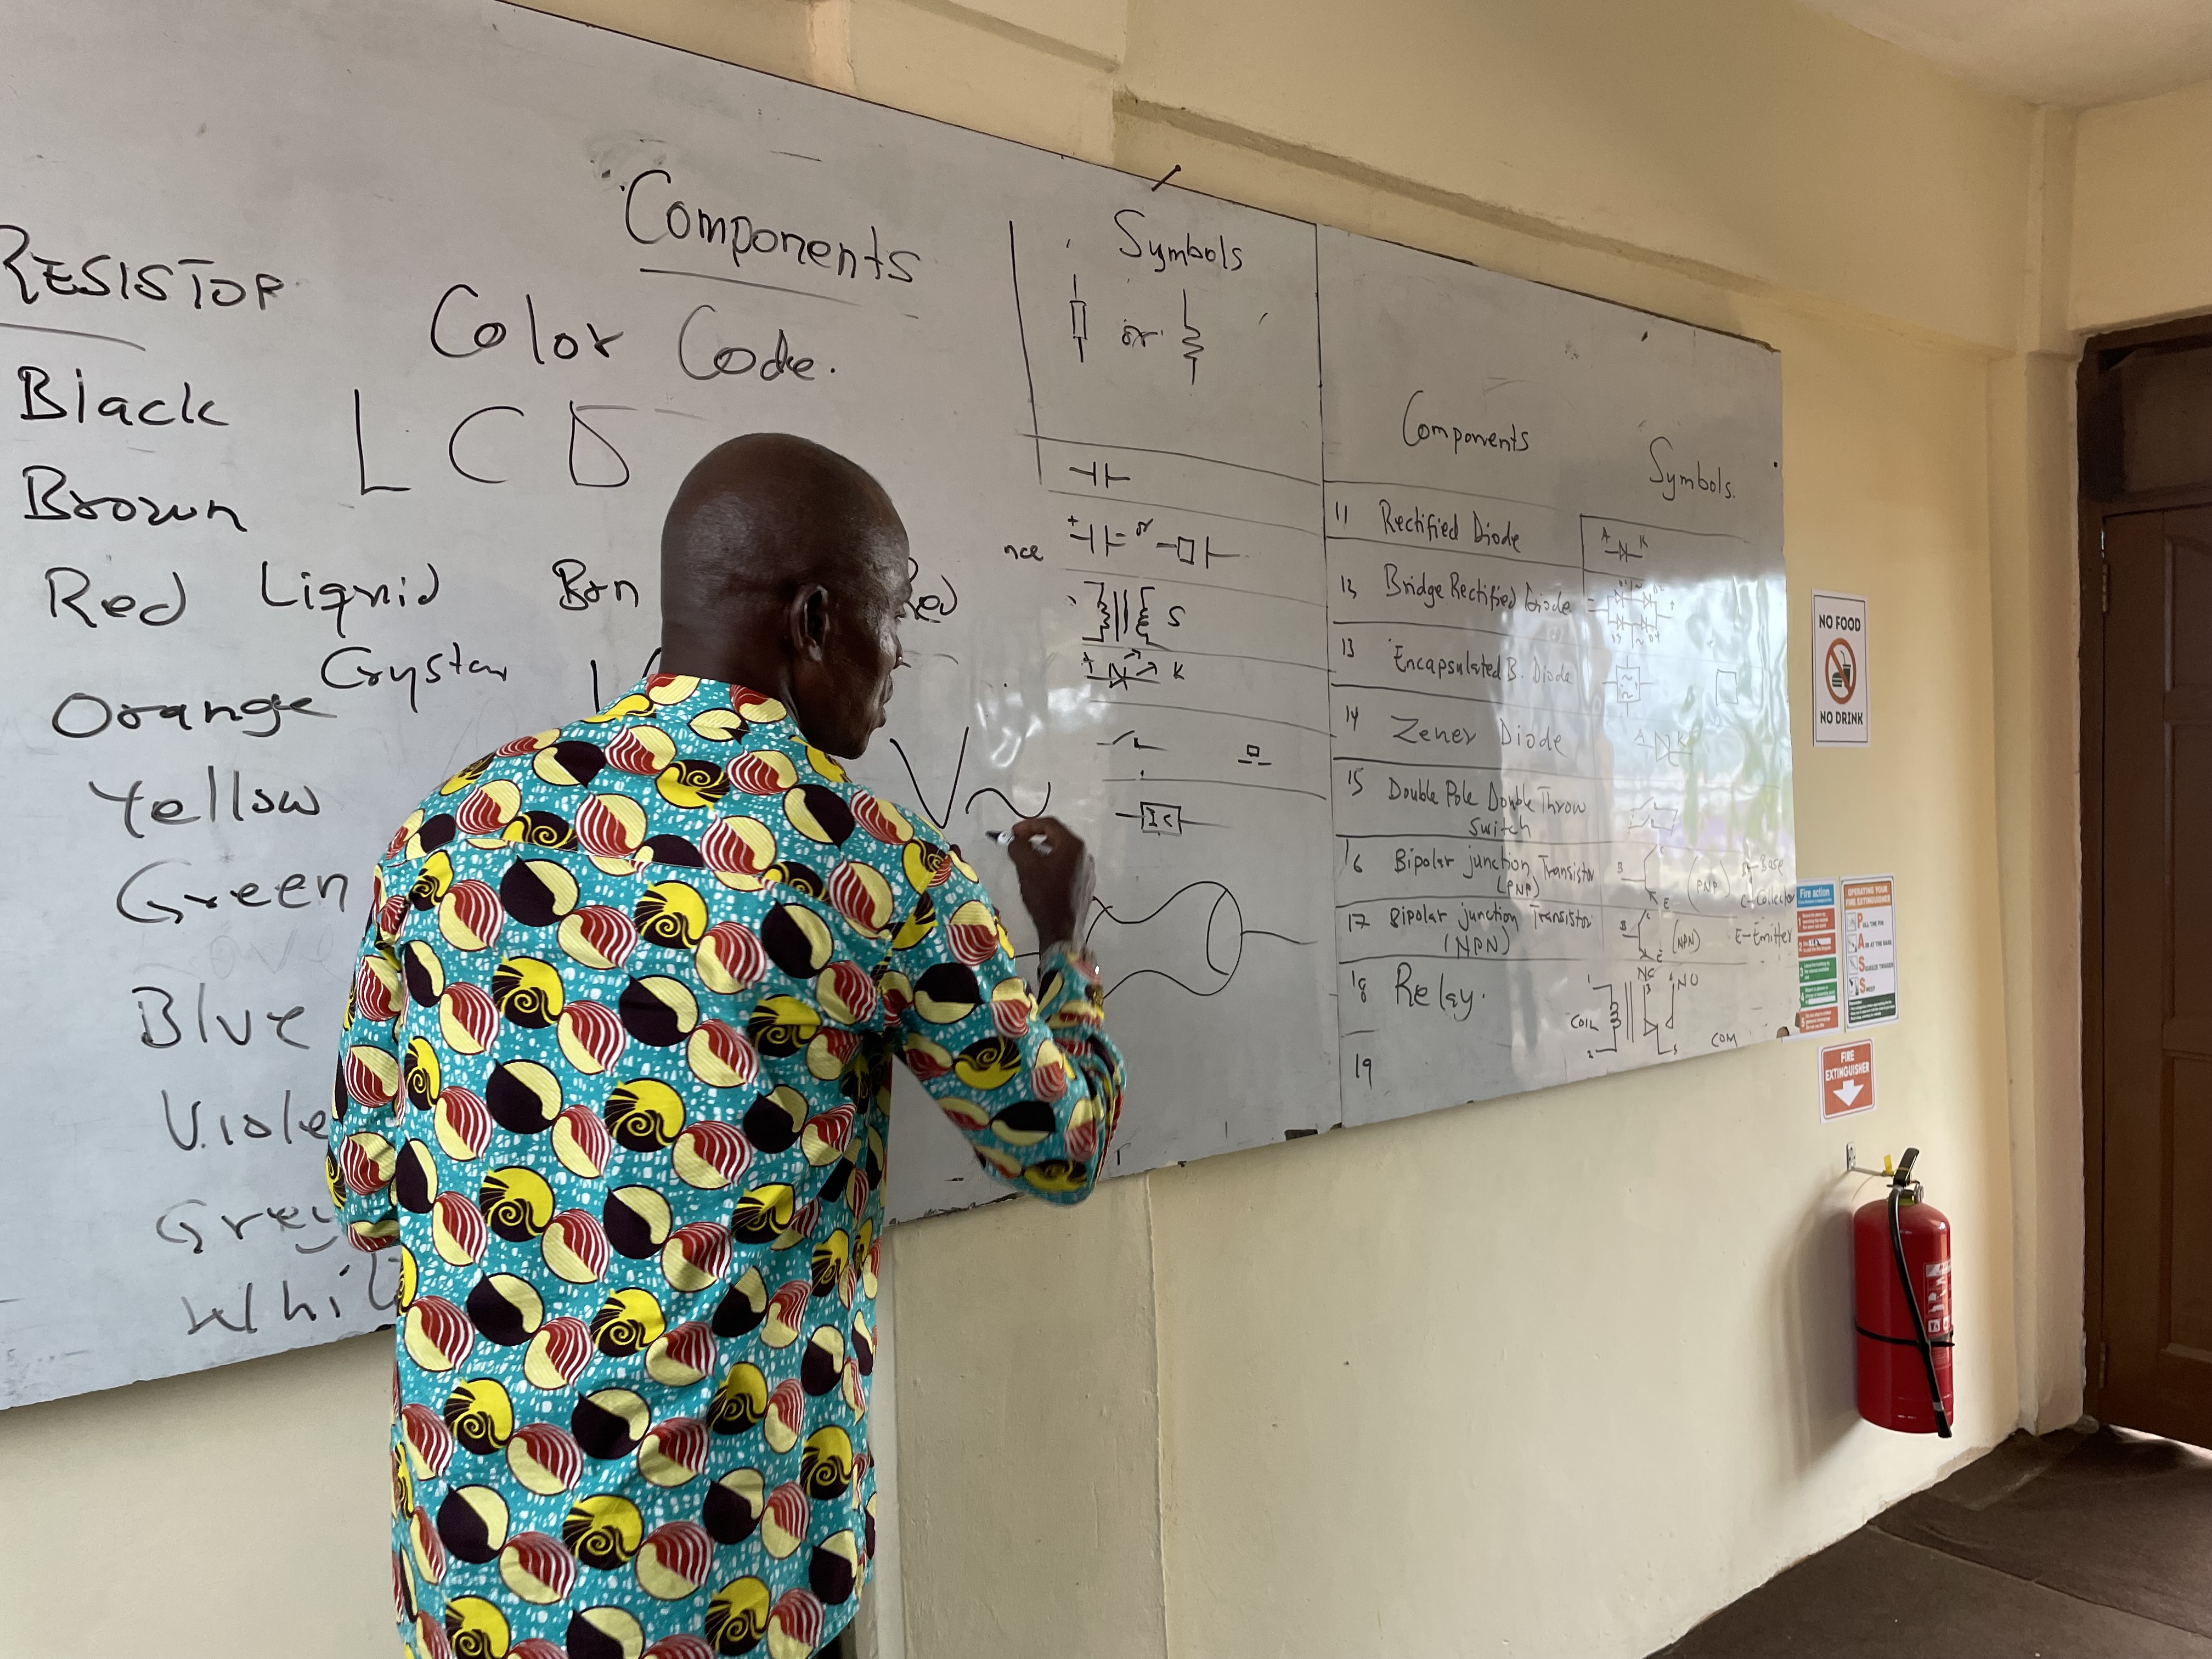 Components
RESISTOR
Color Code.
Black
LCD
Brown
Red Liquid Brn Red
Orange Crystar
Yellow
V
Green
Blue
Grey
Symbols
or
+ or
S
K
IC
Components Symbols.
11 Rectified Diode A K
Bridge Rectified Diode
13 Encapsulated B. Diode
14 Zener Diode A K
15 Double Pole Double Throw
Switch
16 Bipolar junction Transistor
(PNP)
B C E (PNP) B-Base
C-Collector
17 Bipolar junction Transistor
(NPN)
B C E (NPN) E-Emitter
18 Relay. COIL NC NO
COM
19
NO FOOD
NO DRINK
Fire action
OPERATING YOUR
FIRE EXTINGUISHER
PULL THE PIN
AIM AT THE BASE
SQUEEZE TRIGGER
SWEEP
FIRE
EXTINGUISHER